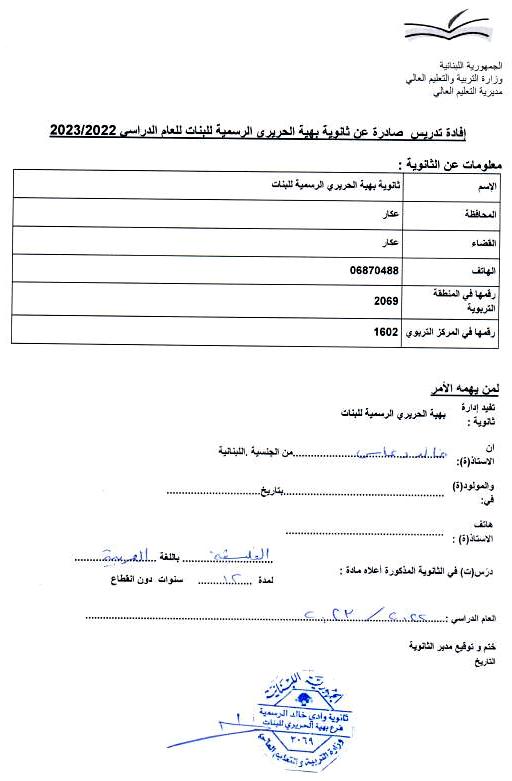 الجمهورية اللبنانية
وزارة التربية والتعليم العالي
مديرية التعليم العالي
إفادة تدريس صادرة عن ثانوية بهية الحريري الرسمية للبنات للعام الدراسي 2023/2022
معلومات عن الثانوية :
الإسم ثانوية بهية الحريري الرسمية للبنات
المحافظة عكار
القضاء عكار
الهاتف 06870488
رقمها في المنطقة التربوية 2069
رقمها في المركز التربوي 1602
لمن يهمه الأمر
تفيد إدارة ثانوية : بهية الحريري الرسمية للبنات
ان الاستاذ(ة): خالد من الجنسية .اللبنانية
والمولود(ة) في: بتاريخ
هاتف الاستاذ(ة) :
درّس(ت) في الثانوية المذكورة أعلاه مادة : الفلسفة باللغة العربية
لمدة ١٢ سنوات دون انقطاع
العام الدراسي : ٢٠٢٢ / ٢٠٢٣
ختم و توقيع مدير الثانوية
التاريخ
الجمهورية اللبنانية
ثانوية وادي خالد الرسمية
فرع بهية الحريري للبنات
٢٠٦٩
وزارة التربية والتعليم العالي